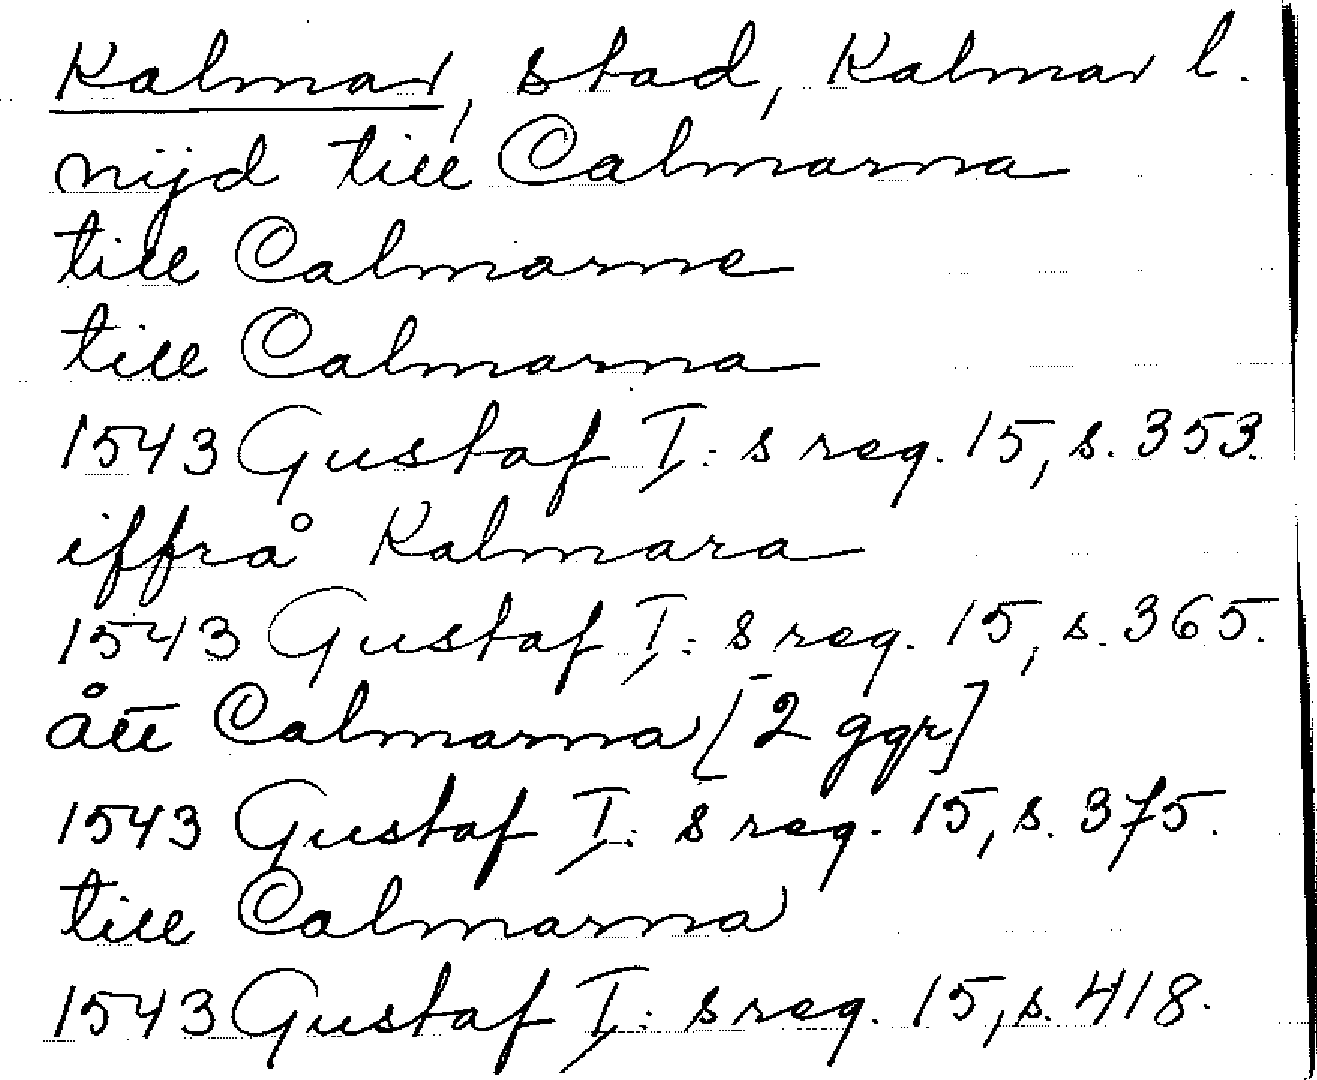 Kalmar, stad, Kalmar l.
nijd till Calmarna
till Calmarne
till Calmarna
1543 Gustaf I:s reg. 15, s. 353.
iffrå Kalmara
1543 Gustaf I:s reg. 15, s. 365.
ått Calmarna [2 ggr]
1543 Gustaf I:s reg. 15, s. 375.
till Calmarna
1543 Gustaf I:s reg. 15, s. 418.